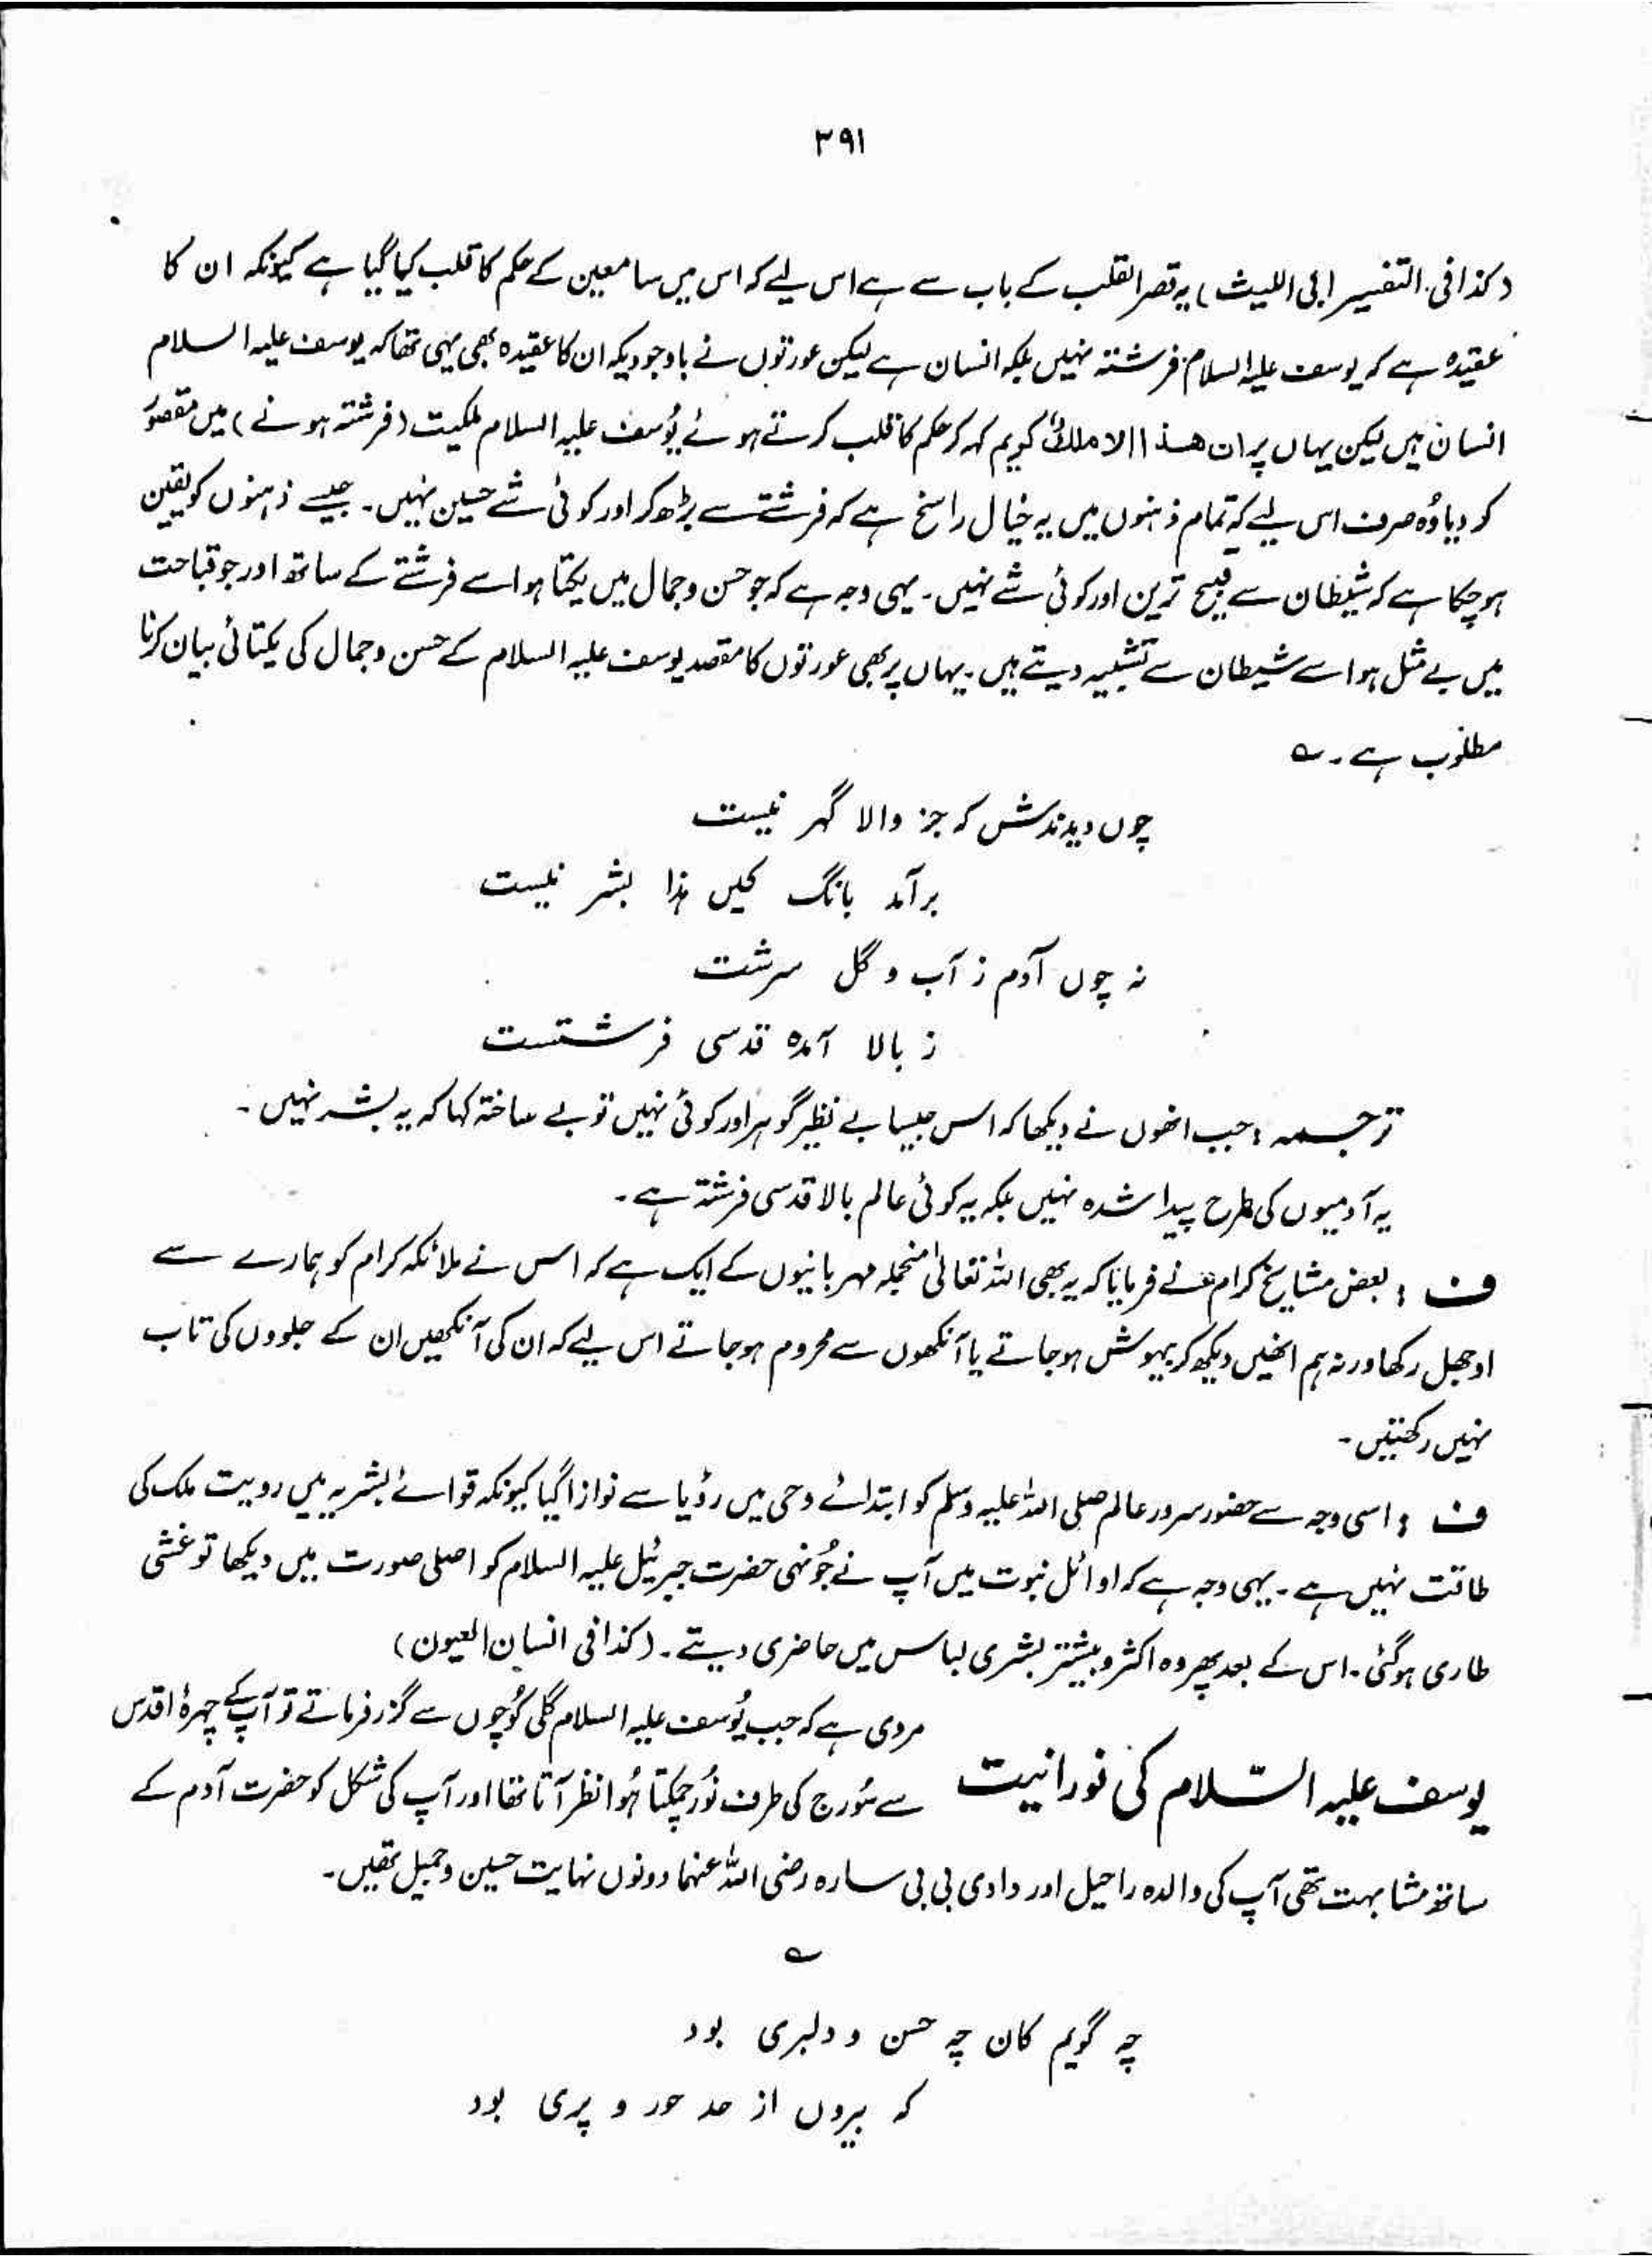 ۳۹۱
(کذا فی التفسیر ابی اللیث) یہ قصر القلب کے باب سے ہے اس لیے کہ اس میں سامعین کے حکم کا قلب کیا گیا ہے کیونکہ ان کا
عقیدہ ہے کہ یوسف علیہ السلام فرشتہ نہیں بلکہ انسان ہے لیکن عورتوں نے باوجودیکہ ان کا عقیدہ بھی یہی تھا کہ یوسف علیہ السلام
انسان ہیں لیکن یہاں پر ان ھذا الا ملکٌ کریم کہہ کر حکم کا قلب کرتے ہوئے یُوسف علیہ السلام ملکیت (فرشتہ ہونے) میں مقصُور
کر دیا وُہ صرف اس لیے کہ تمام ذہنوں میں یہ خیال راسخ ہے کہ فرشتے سے بڑھ کر اور کوئی شے حسین نہیں۔ جیسے ذہنوں کو یقین
ہو چکا ہے کہ شیطان سے قبیح ترین اور کوئی شے نہیں۔ یہی وجہ ہے کہ جو حسن و جمال میں یکتا ہو اسے فرشتے کے ساتھ اور جو قباحت
میں بے مثل ہو اسے شیطان سے تشبیہ دیتے ہیں۔ یہاں پر بھی عورتوں کا مقصد یوسف علیہ السلام کے حسن و جمال کی یکتائی بیان کرنا
مطلوب ہے۔ ؎
چوں دیدندش کہ جز والا گہر نیست
برآمد بانگ کیں ہذا بشر نیست
نہ چوں آدم ز آب و گل سرشت
ز بالا آمدہ قدسی فرشتست
ترجمہ : جب انھوں نے دیکھا کہ اس جیسا بے نظیر گوہر اور کوئی نہیں تو بے ساختہ کہا کہ یہ بشر نہیں۔
یہ آدمیوں کی طرح پیدا شدہ نہیں بلکہ یہ کوئی عالم بالا قدسی فرشتہ ہے۔
ف : بعض مشایخ کرام نے فرمایا کہ یہ بھی اللہ تعالیٰ منجملہ مہربانیوں کے ایک ہے کہ اس نے ملائکہ کرام کو ہمارے سے
اوجھل رکھا ورنہ ہم انھیں دیکھ کر بیہوش ہو جاتے یا آنکھوں سے محروم ہو جاتے اس لیے کہ ان کی آنکھیں ان کے جلووں کی تاب
نہیں رکھتیں۔
ف : اسی وجہ سے حضور سرور عالم صلی اللہ علیہ وسلم کو ابتدائے وحی میں رؤیا سے نوازا گیا کیونکہ قوائے بشریہ میں رویت ملک کی
طاقت نہیں ہے۔ یہی وجہ ہے کہ اوائل نبوت میں آپ نے جُونہی حضرت جبرئیل علیہ السلام کو اصلی صورت میں دیکھا تو غشی
طاری ہوگئی۔ اس کے بعد پھر وہ اکثر و بیشتر بشری لباس میں حاضری دیتے۔ (کذا فی انسان العیون)
یوسف علیہ السّلام کی نورانیت
مروی ہے کہ جب یُوسف علیہ السلام گلی کُوچوں سے گزر فرماتے تو آپ کے چہرۂ اقدس
سے سُورج کی طرف نُور چمکتا ہُوا نظر آتا تھا اور آپ کی شکل کو حضرت آدم کے
ساتھ مشابہت تھی آپ کی والدہ راحیل اور دادی بی بی سارہ رضی اللہ عنہما دونوں نہایت حسین و جمیل تھیں۔
؎
چہ گویم کان چہ حسن و دلبری بود
کہ بیروں از حد حور و پری بود